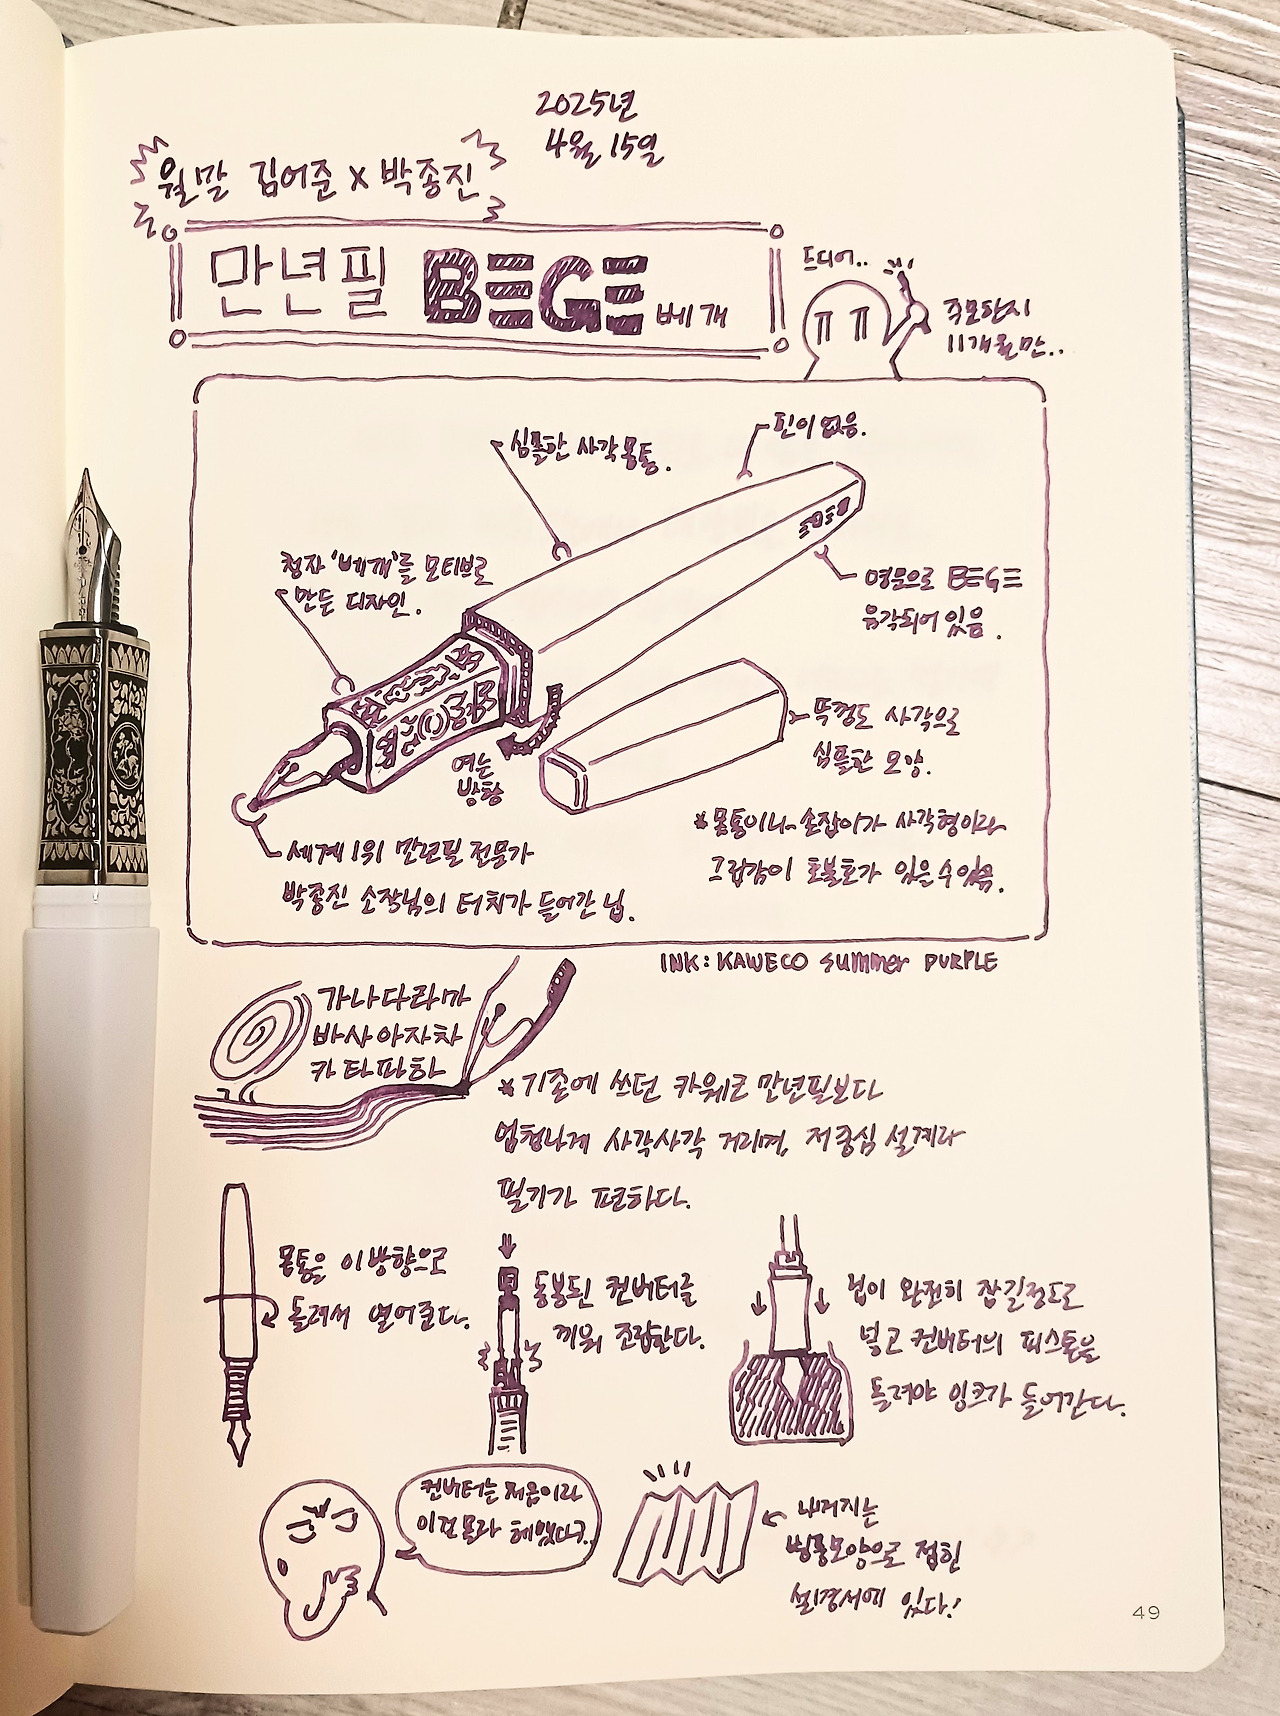 2025년
4월 15일
월말 김어준 x 박종진
만년필 BEGE 베개
드디어..
주문한지
11개월만..
심플한 사각몸통.
핀이 없음.
청자 '베개'를 모티브로
만든 디자인.
영문으로 BEGE
음각되어 있음.
여는
방향
뚜껑도 사각으로
심플한 모양.
*몸통이나 손잡이가 사각형이라
그립감이 호불호가 있을 수 있음.
세계 1위 만년필 전문가
박종진 소장님의 터치가 들어간 닙.
INK: KAWECO SUMMER PURPLE
가나다라마
바사아자차
카타파하
*기존에 쓰던 카웨코 만년필보다
엄청나게 사각사각 거리며, 저중심 설계라
필기가 편하다.
몸통을 이 방향으로
돌려서 열어준다.
동봉된 컨버터를
끼워 조립한다.
닙이 완전히 잠길정도로
넣고 컨버터의 피스톤을
돌려야 잉크가 들어간다.
컨버터는 처음이라
이걸 몰라 헤맸다구..
내려지는
병풍모양으로 접힌
설명서에 있다!
49